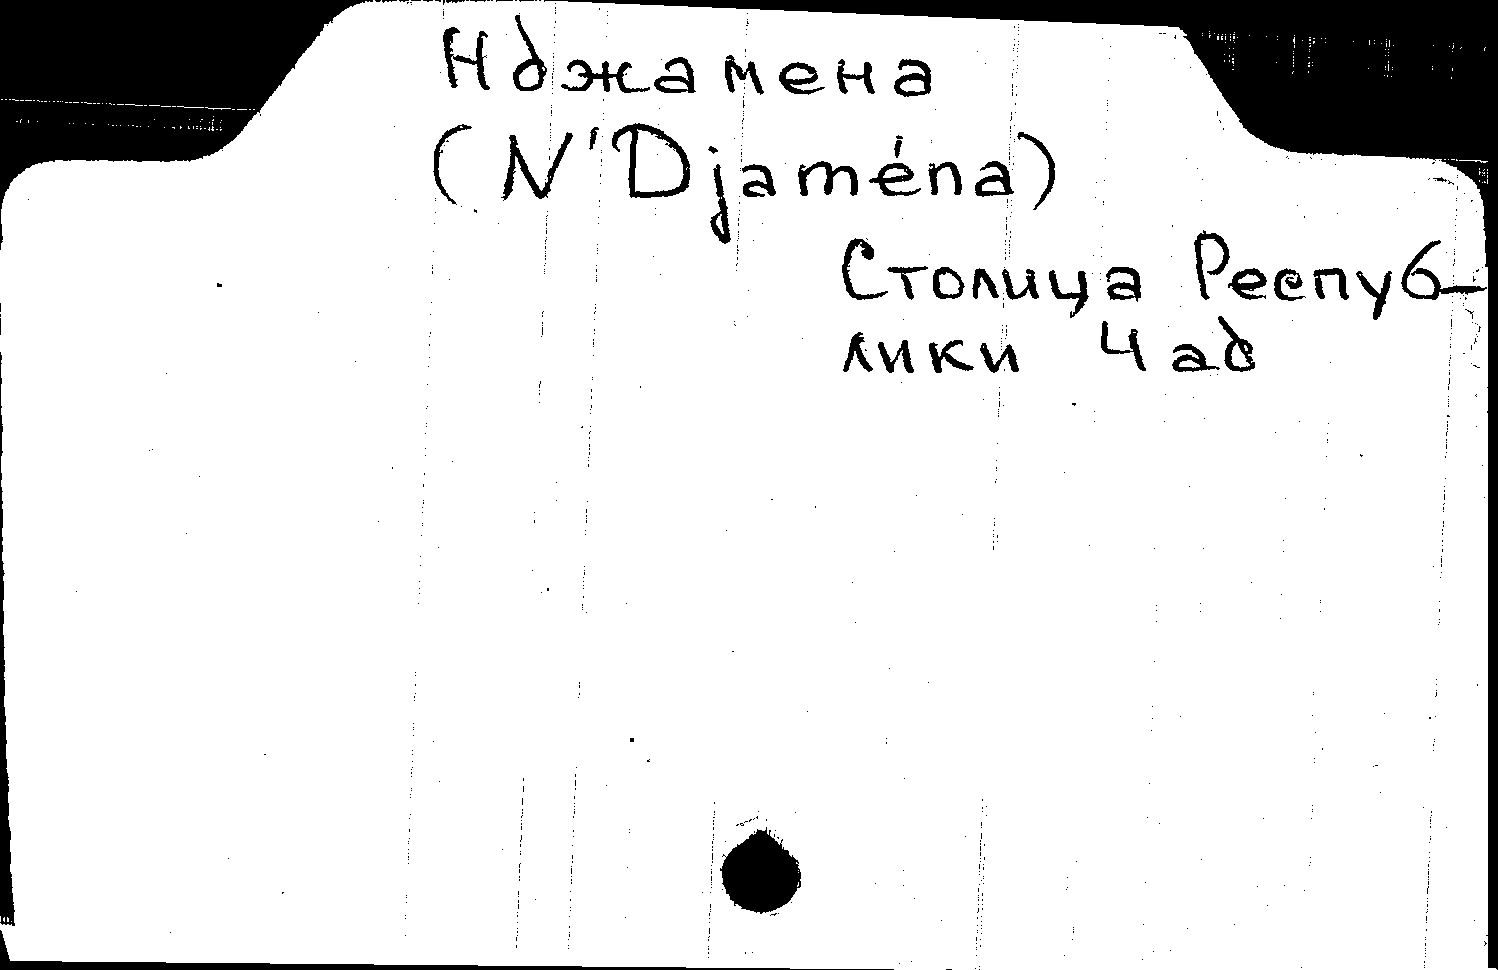 Нджамена
(N'Djaména)
Столица Респуб-
лики Чад